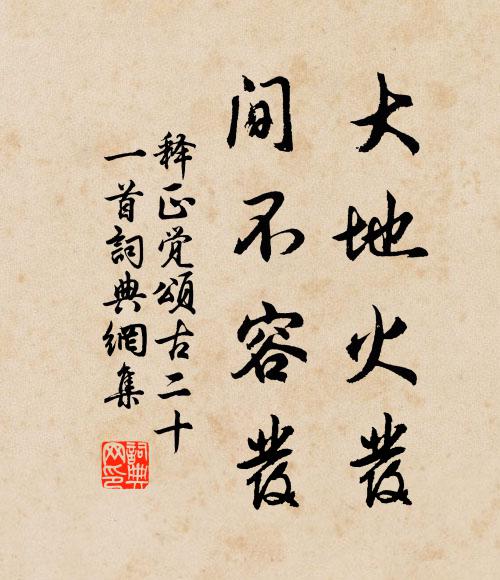 大地火發
間不容發
释正觉頌古二十
一首詞典網集
詞典
网印